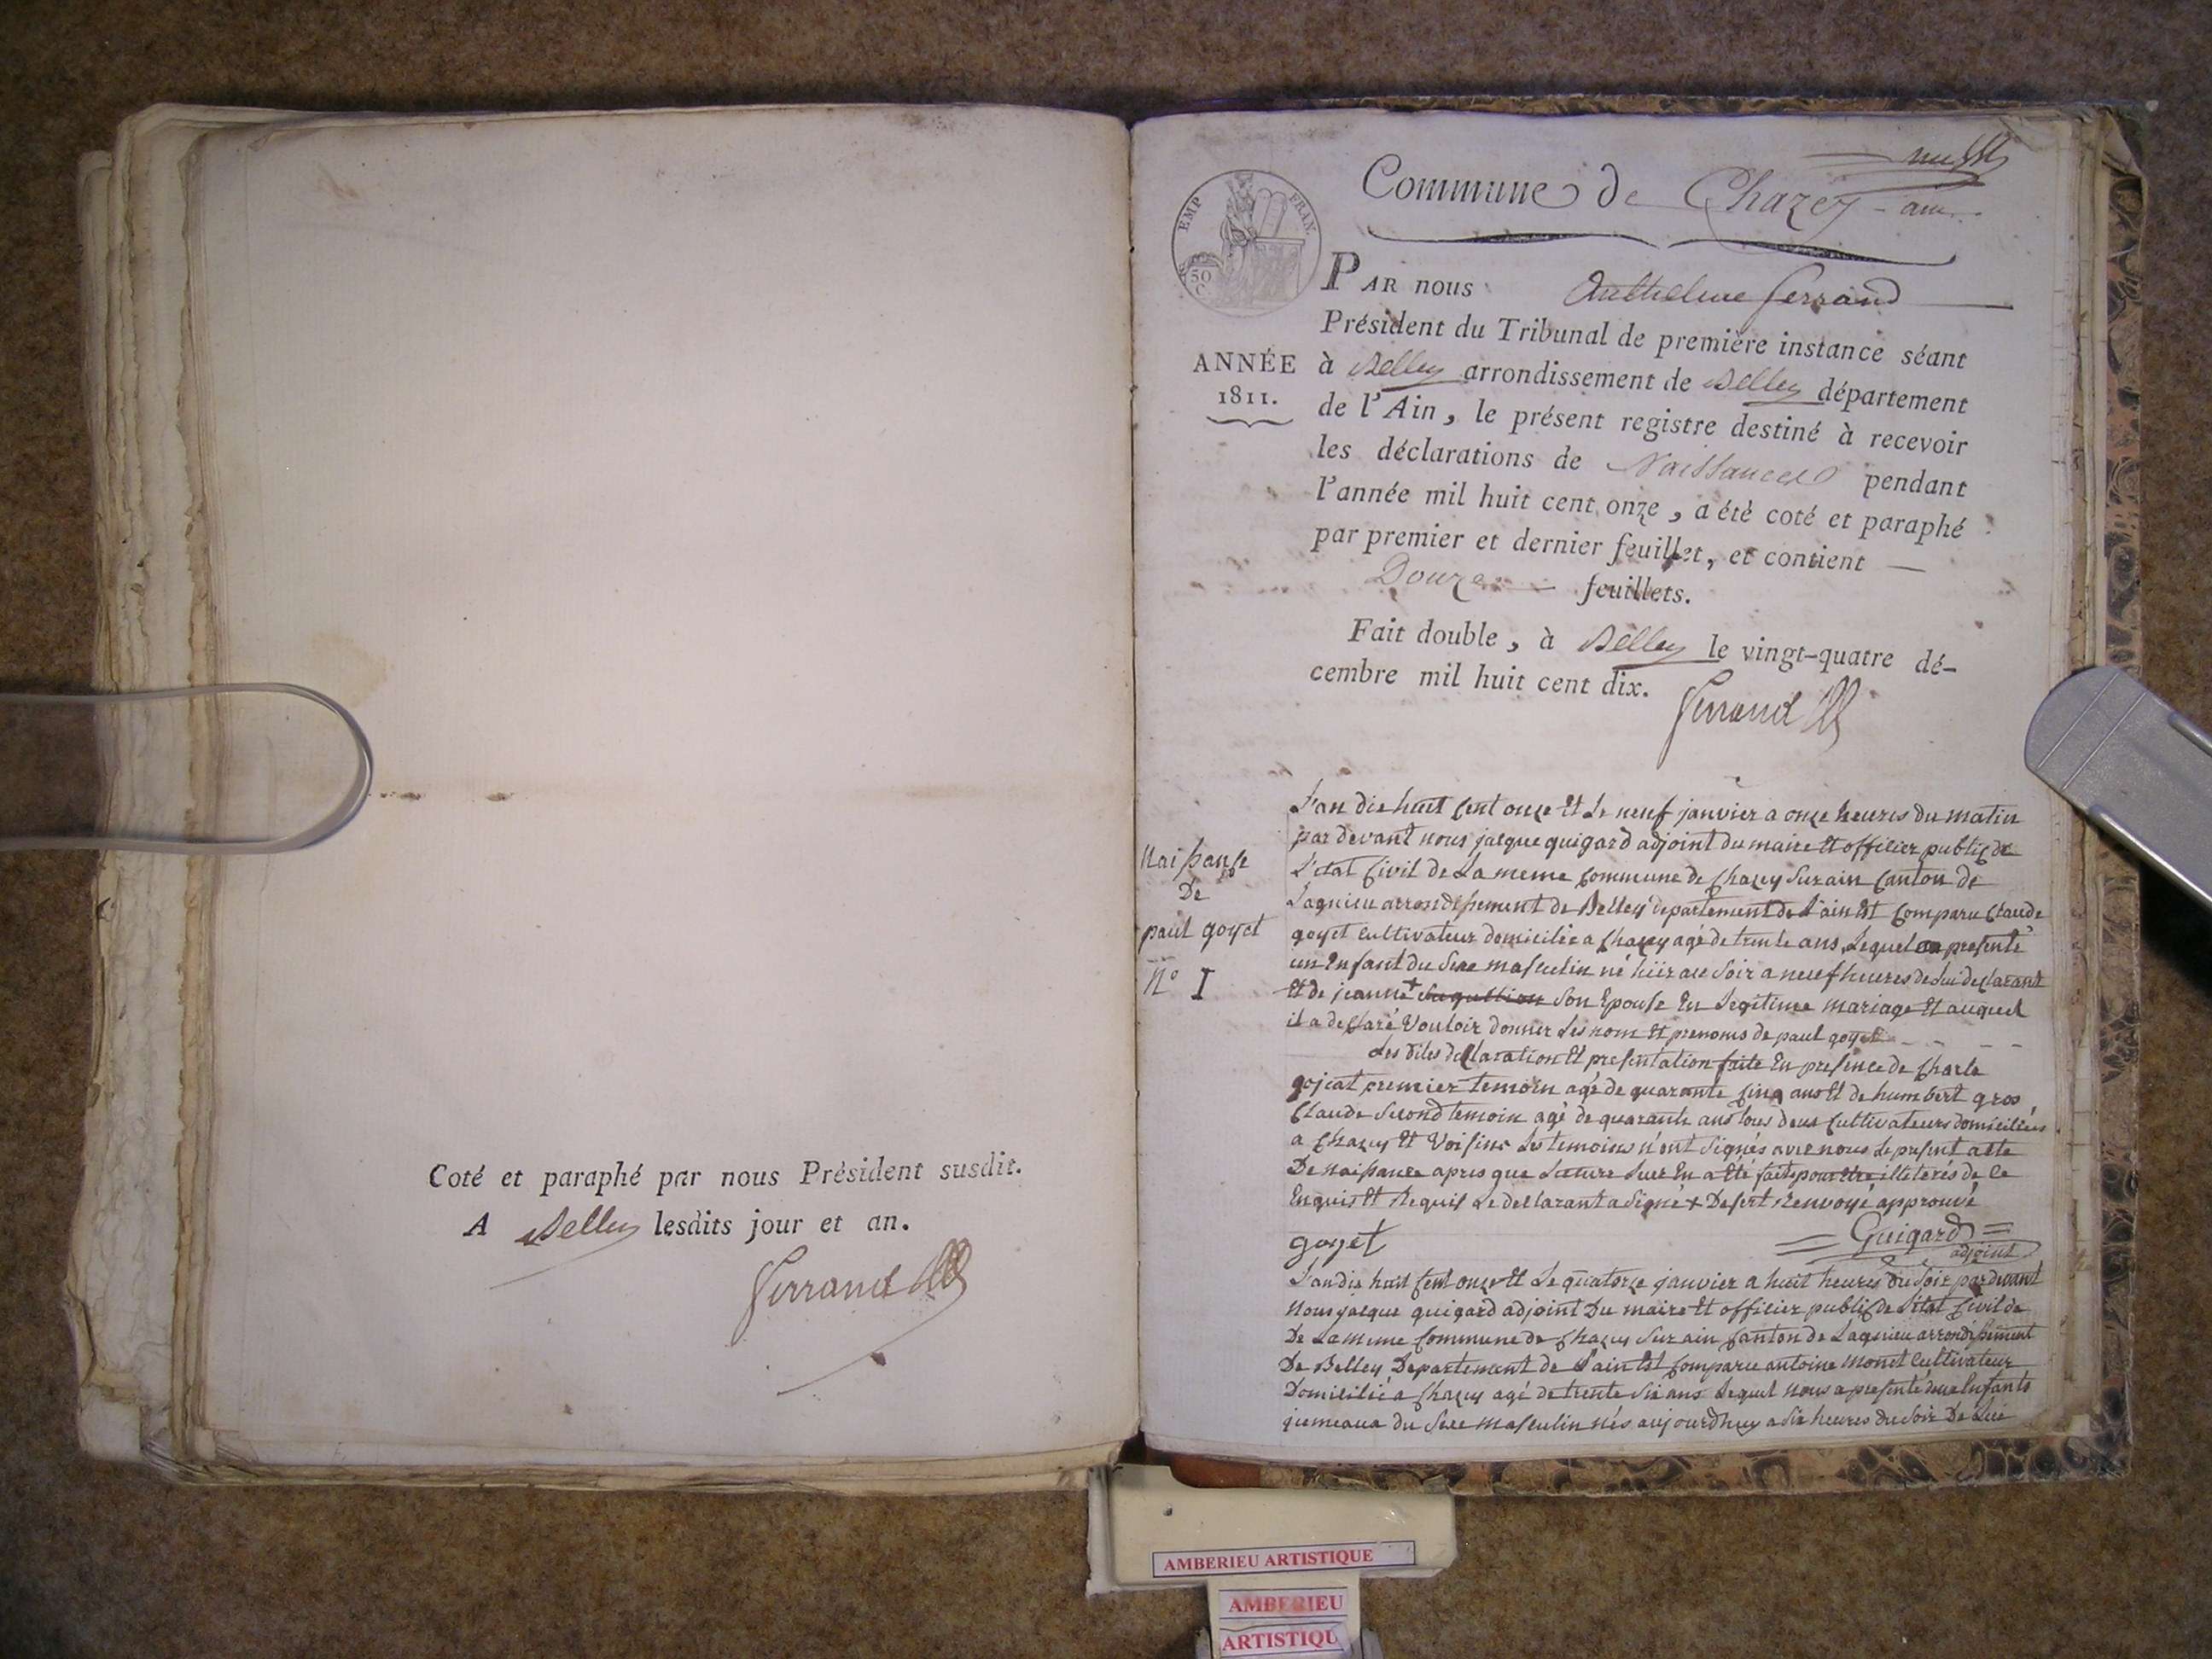 Coté et paraphé par nous Président susdit.
A Belley lesdits jour et an.
Ferrand
Commune de Chazey - ain
EMP FRAN.
50
C
PAR nous Anthelme Ferrand
Président du Tribunal de première instance séant
ANNÉE
1811.
à Belley arrondissement de Belley département
de l'Ain, le présent registre destiné à recevoir
les déclarations de Naissances pendant
l'année mil huit cent onze, a été coté et paraphé
par premier et dernier feuillet, et contient —
Douze — feuillets.
Fait double, à Belley le vingt-quatre dé-
cembre mil huit cent dix.
Ferrand
Naissance
De
paul goyet
N° I
L'an dix huit cent onze Et Le neuf janvier a onze heures du matin
par devant nous jacque guigard adjoint du maire Et officier public de
L'etat Civil de La meme Commune de Chazey Sur ain Canton de
Lagnieu arrondissement de Belley departement de L'ain Est Comparu Claude
goyet Cultivateur domicilié a Chazey agé de trente ans Lequel a presenté
un Enfant du Sexe masculin né hiir au Soir a neuf heures de Lui declarant
Et de jeanne + Son Epouse En Legitime mariage Et auquel
il a declaré Vouloir donner Les nom Et prenoms de paul goyet
Les dites declaration Et presentation faite En presence de Charle
gojeat premier temoin agé de quarante Cinq ans Et de humbert gros
Claude Second temoin agé de quarante ans tous deux Cultivateurs domiciliés
a Chazey Et Voisins Les temoins n'ont Signés avec nous Le present acte
De naissance apres que Lecture Leur En a Eté faite pour Etre illeterés de Ce
Enquis Et Requis Le declarant a Signé + Desert Renvoyé approuvé
goyet
Guigard
adjoint
L'an dix huit Cent onze Et Le quatorze janvier a huit heures du Soir par devant
Nous jacque guigard adjoint Du maire Et officier public de L'etat Civil de
De La meme Commune de Chazey Sur ain Canton de Lagnieu arrondissement
De Belley Departement de L'ain Est Comparu antoine Monet Cultivateur
Domicilié a Chazey agé de trente Six ans Lequel Nous a presenté deux Enfants
jumeaux du Sexe masculin nés aujourdhuy a Six heures du Soir De Lui
AMBERIEU ARTISTIQUE
AMBERIEU
ARTISTIQU